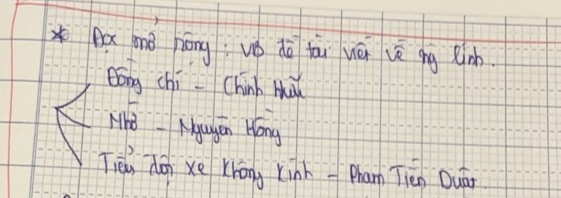 * Đọc mở rộng: VB đề tài viết về ng lính.
Đồng chí - Chính Hữu
Nhớ - Nguyên Hồng
Tiểu đội xe không kính - Phạm Tiến Duật.